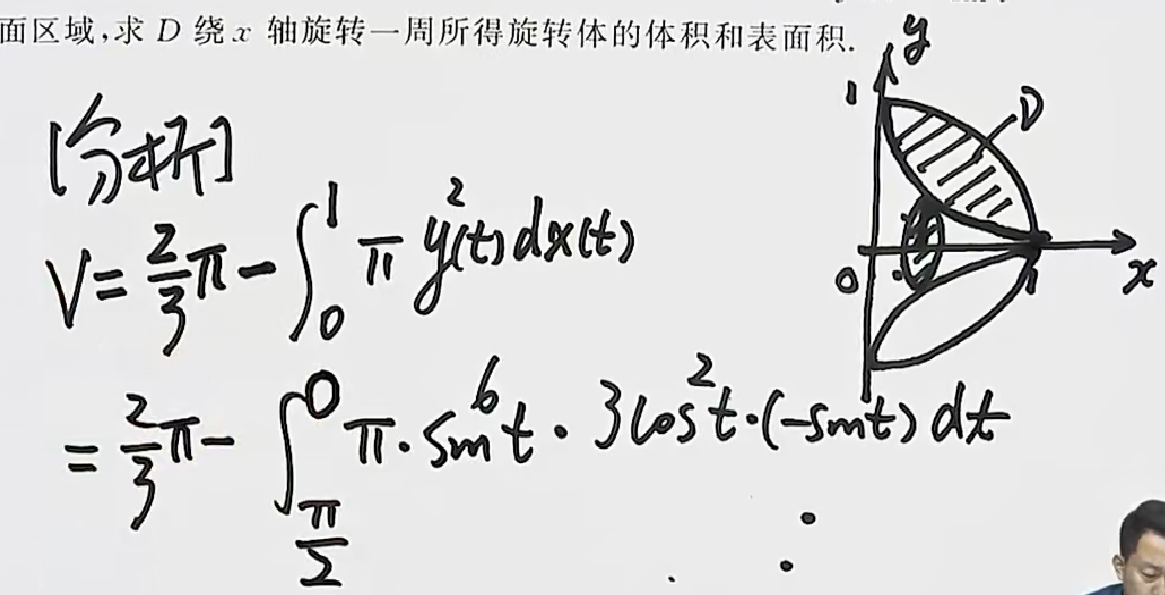 面区域,求 D 绕 x 轴旋转一周所得旋转体的体积和表面积.
y
1
D
[分析]
V = \frac{2}{3}π - \int_{0}^{1} π y^{2}(t) dx(t)
0
1
x
= \frac{2}{3}π - \int_{\frac{π}{2}}^{0} π · sin^{6} t · 3cos^{2} t · (-sin t) dt